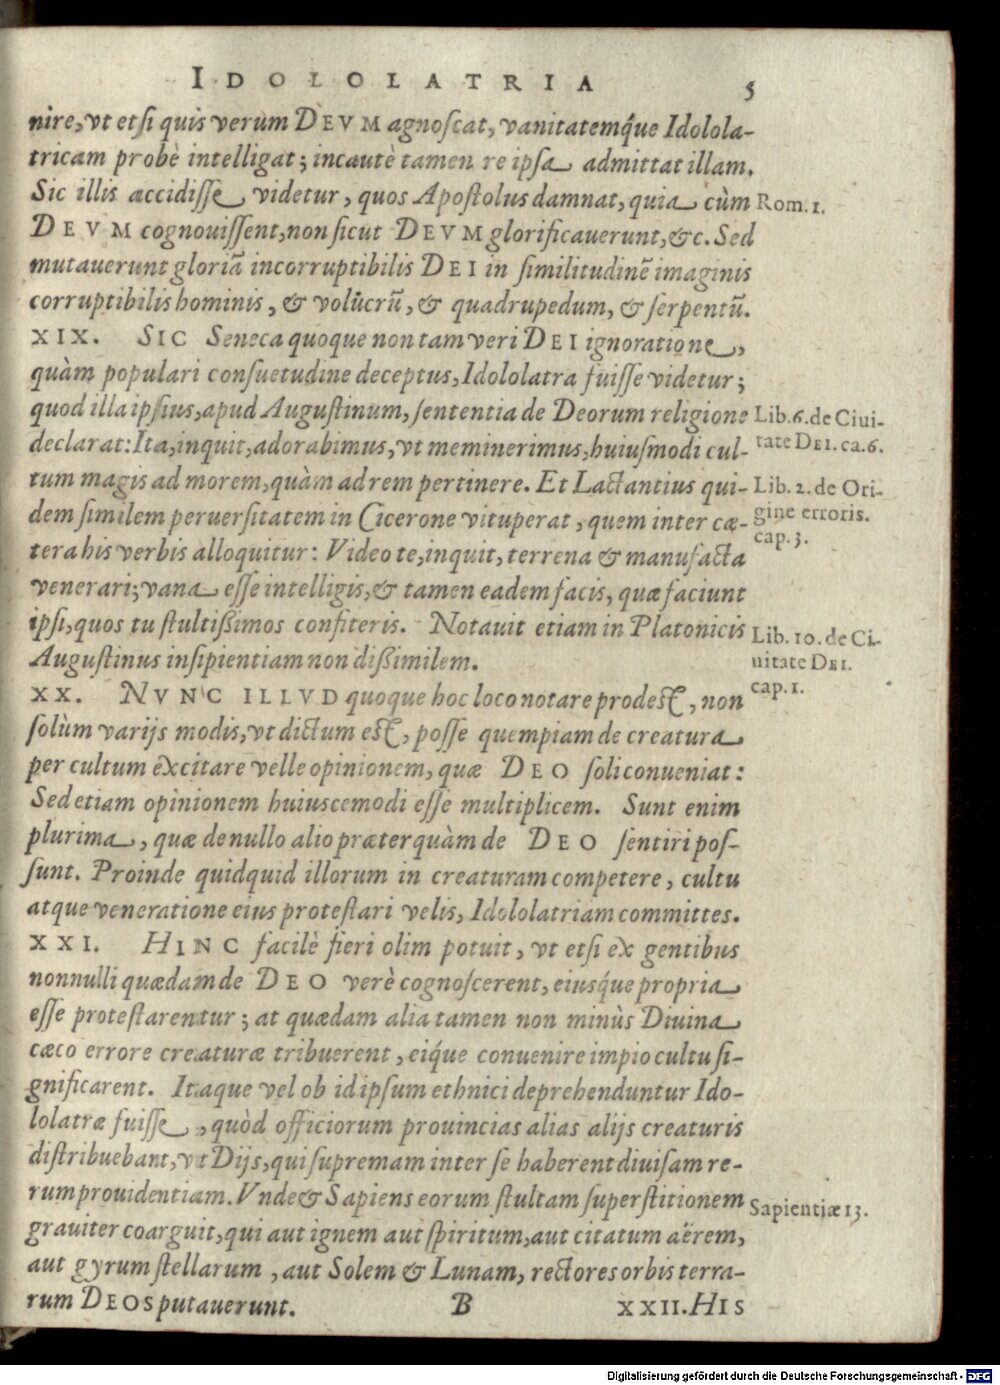 IDOLOLATRIA 5
nire, vt etsi quis verum DEVM agnoscat, vanitatemq́ue Idolola-
tricam probè intelligat; incautè tamen re ipsa admittat illam.
Sic illis accidisse videtur, quos Apostolus damnat, quia cùm
Rom. 1.
DEVM cognouissent, non sicut DEVM glorificauerunt, &c. Sed
mutauerunt gloriã incorruptibilis DEI in similitudinẽ imaginis
corruptibilis hominis, & volucrũ, & quadrupedum, & serpentũ.
XIX. SIC Seneca quoque non tam veri DEI ignoratione,
quàm populari consuetudine deceptus, Idololatra fuisse videtur;
quod illa ipsius, apud Augustinum, sententia de Deorum religione
Lib. 6. de Ciui-
declarat: Ita, inquit, adorabimus, vt meminerimus, huiusmodi cul-
tate DEI. ca. 6.
tum magis ad morem, quàm ad rem pertinere. Et Lactantius qui-
Lib. 2. de Ori-
dem similem peruersitatem in Cicerone vituperat, quem inter cæ-
gine erroris.
cap. 3.
tera his verbis alloquitur: Video te, inquit, terrena & manufacta
venerari; vana esse intelligis, & tamen eadem facis, quæ faciunt
ipsi, quos tu stultißimos confiteris. Notauit etiam in Platonicis
Lib. 10. de Ci-
Augustinus insipientiam non dißimilem.
uitate DEI.
cap. 1.
XX. NVNC ILLVD quoque hoc loco notare prodest, non
solùm varijs modis, vt dictum est, posse quempiam de creatura
per cultum excitare velle opinionem, quæ DEO soli conueniat:
Sed etiam opinionem huiuscemodi esse multiplicem. Sunt enim
plurima, quæ de nullo alio præterquàm de DEO sentiri pos-
sunt. Proinde quidquid illorum in creaturam competere, cultu
atque veneratione eius protestari velis, Idololatriam committes.
XXI. HINC facilè fieri olim potuit, vt etsi ex gentibus
nonnulli quædam de DEO verè cognoscerent, eiusq́ue propria
esse protestarentur; at quædam alia tamen non minùs Diuina
cæco errore creaturæ tribuerent, eiq́ue conuenire impio cultu si-
gnificarent. Itaque vel ob id ipsum ethnici deprehenduntur Ido-
lolatræ fuisse, quòd officiorum prouincias alias alijs creaturis
distribuebant, vt Dijs, qui supremam inter se haberent diuisam re-
rum prouidentiam. Vnde & Sapiens eorum stultam superstitionem
Sapientiæ 13.
grauiter coarguit, qui aut ignem aut spiritum, aut citatum aërem,
aut gyrum stellarum, aut Solem & Lunam, rectores orbis terra-
rum DEOS putauerunt.
B XXII. HIS
Digitalisierung gefördert durch die Deutsche Forschungsgemeinschaft - DFG